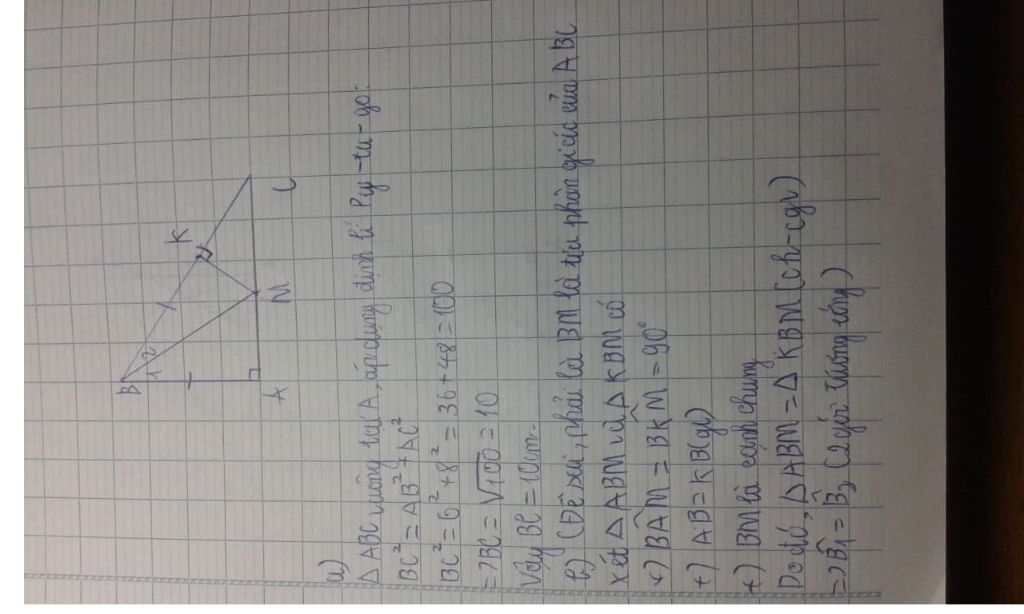 B
1 2
K
A
M
C
a)
ΔABC vuông tại A, áp dụng định lí Py-ta-go:
BC² = AB² + AC²
BC² = 6² + 8² = 36 + 48 = 100
=> BC = √100 = 10
Vậy BC = 10cm.
b) (Đề sai, phải là BM là tia phân giác của ABC
Xét ΔABM và ΔKBM có
+) BÂM = BK̂M = 90°
+) AB = KB (gt)
+) BM là cạnh chung
Do đó, ΔABM = ΔKBM (ch-cgv)
=> B̂₁ = B̂₂ (2 góc tương ứng)